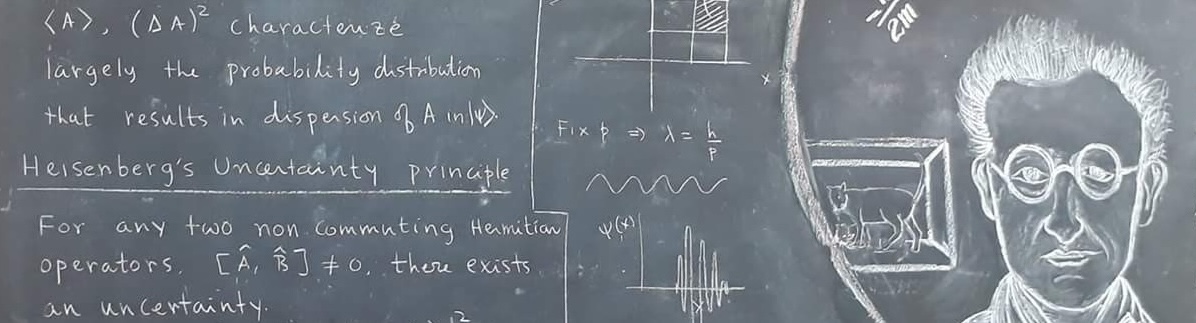 ⟨A⟩, (ΔA)² characterize
largely the probability distribution
that results in dispersion of A in |ψ⟩.
Heisenberg's Uncertainty principle
For any two non commuting Hermitian
operators, [Â, B̂] ≠ 0, there exists
an uncertainty.
2
x
Fix p ⇒ λ = h/p
ψ(x)
2m